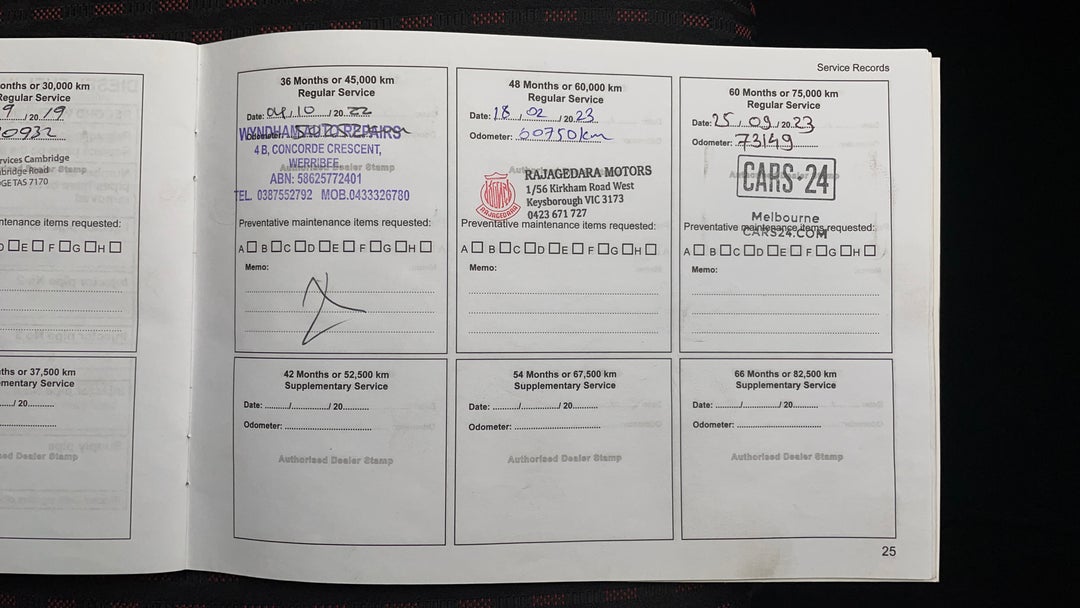 Service Records
onths or 30,000 km
Regular Service
9 / 20 19
0932
rvices Cambridge
bridge Road
GE TAS 7170
ntenance items requested:
D E F G H
36 Months or 45,000 km
Regular Service
Date: 04, 10 / 20 22
Odometer:
WYNDHAM AUTO REPAIRS
4 B, CONCORDE CRESCENT,
WERRIBEE
Authorised Dealer Stamp
ABN: 58625772401
TEL. 0387552792 MOB.0433326780
Preventative maintenance items requested:
A B C D E F G H
Memo:
48 Months or 60,000 km
Regular Service
Date: 18, 02 / 20 23
Odometer: 60750km
RAJAGEDARA MOTORS
1/56 Kirkham Road West
Keysborough VIC 3173
0423 671 727
RAJAGEDARA
Preventative maintenance items requested:
A B C D E F G H
Memo:
60 Months or 75,000 km
Regular Service
Date: 25, 09, 20 23
Odometer: 73149
CARS·24
Melbourne
CARS24.COM
Preventative maintenance items requested:
A B C D E F G H
Memo:
ths or 37,500 km
mentary Service
/ 20
sed Dealer Stamp
42 Months or 52,500 km
Supplementary Service
Date: / / 20
Odometer:
Authorised Dealer Stamp
54 Months or 67,500 km
Supplementary Service
Date: / / 20
Odometer:
Authorised Dealer Stamp
66 Months or 82,500 km
Supplementary Service
Date: / / 20
Odometer:
Authorised Dealer Stamp
25